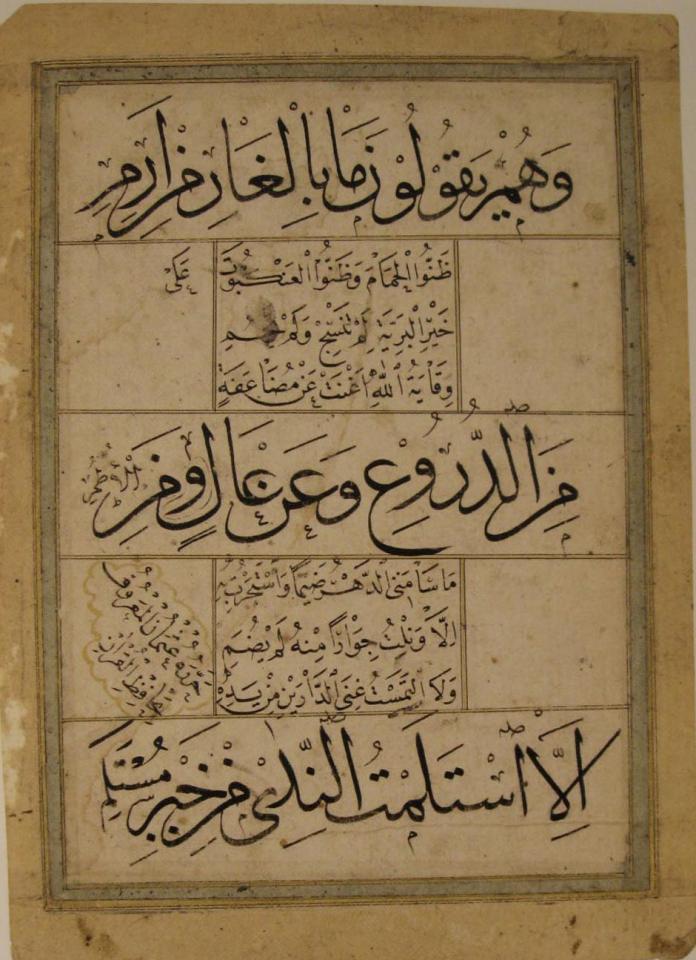 وَهُمْ يَقُولُونَ مَا بِالْغَارِ مِنْ اَرِمِ
ظَنُّوا الْحَمَامَ وَظَنُّوا الْعَنْكَبُوتَ عَلَى
خَيْرِ الْبَرِيَّةِ لَمْ تَنْسُجْ وَلَمْ تَحُمِ
وِقَايَةُ اللهِ اَغْنَتْ عَنْ مُضَاعَفَةٍ
مِنَ الدُّرُوعِ وَعَنْ عَالٍ وَمِنَ الْاُطُمِ
مَا سَامَنِى الدَّهْرُ ضَيْمًا وَاسْتَجَرْتُ بِهِ
اِلَّا وَنِلْتُ جِوَارًا مِنْهُ لَمْ يُضَمِ
وَلَا الْتَمَسْتُ غِنَى الدَّارَيْنِ مِنْ يَدِهِ
حرره عثمان المعروف
بحافظ القرآن
اِلَّا اسْتَلَمْتُ النَّدَى مِنْ خَيْرِ مُسْتَلَمِ